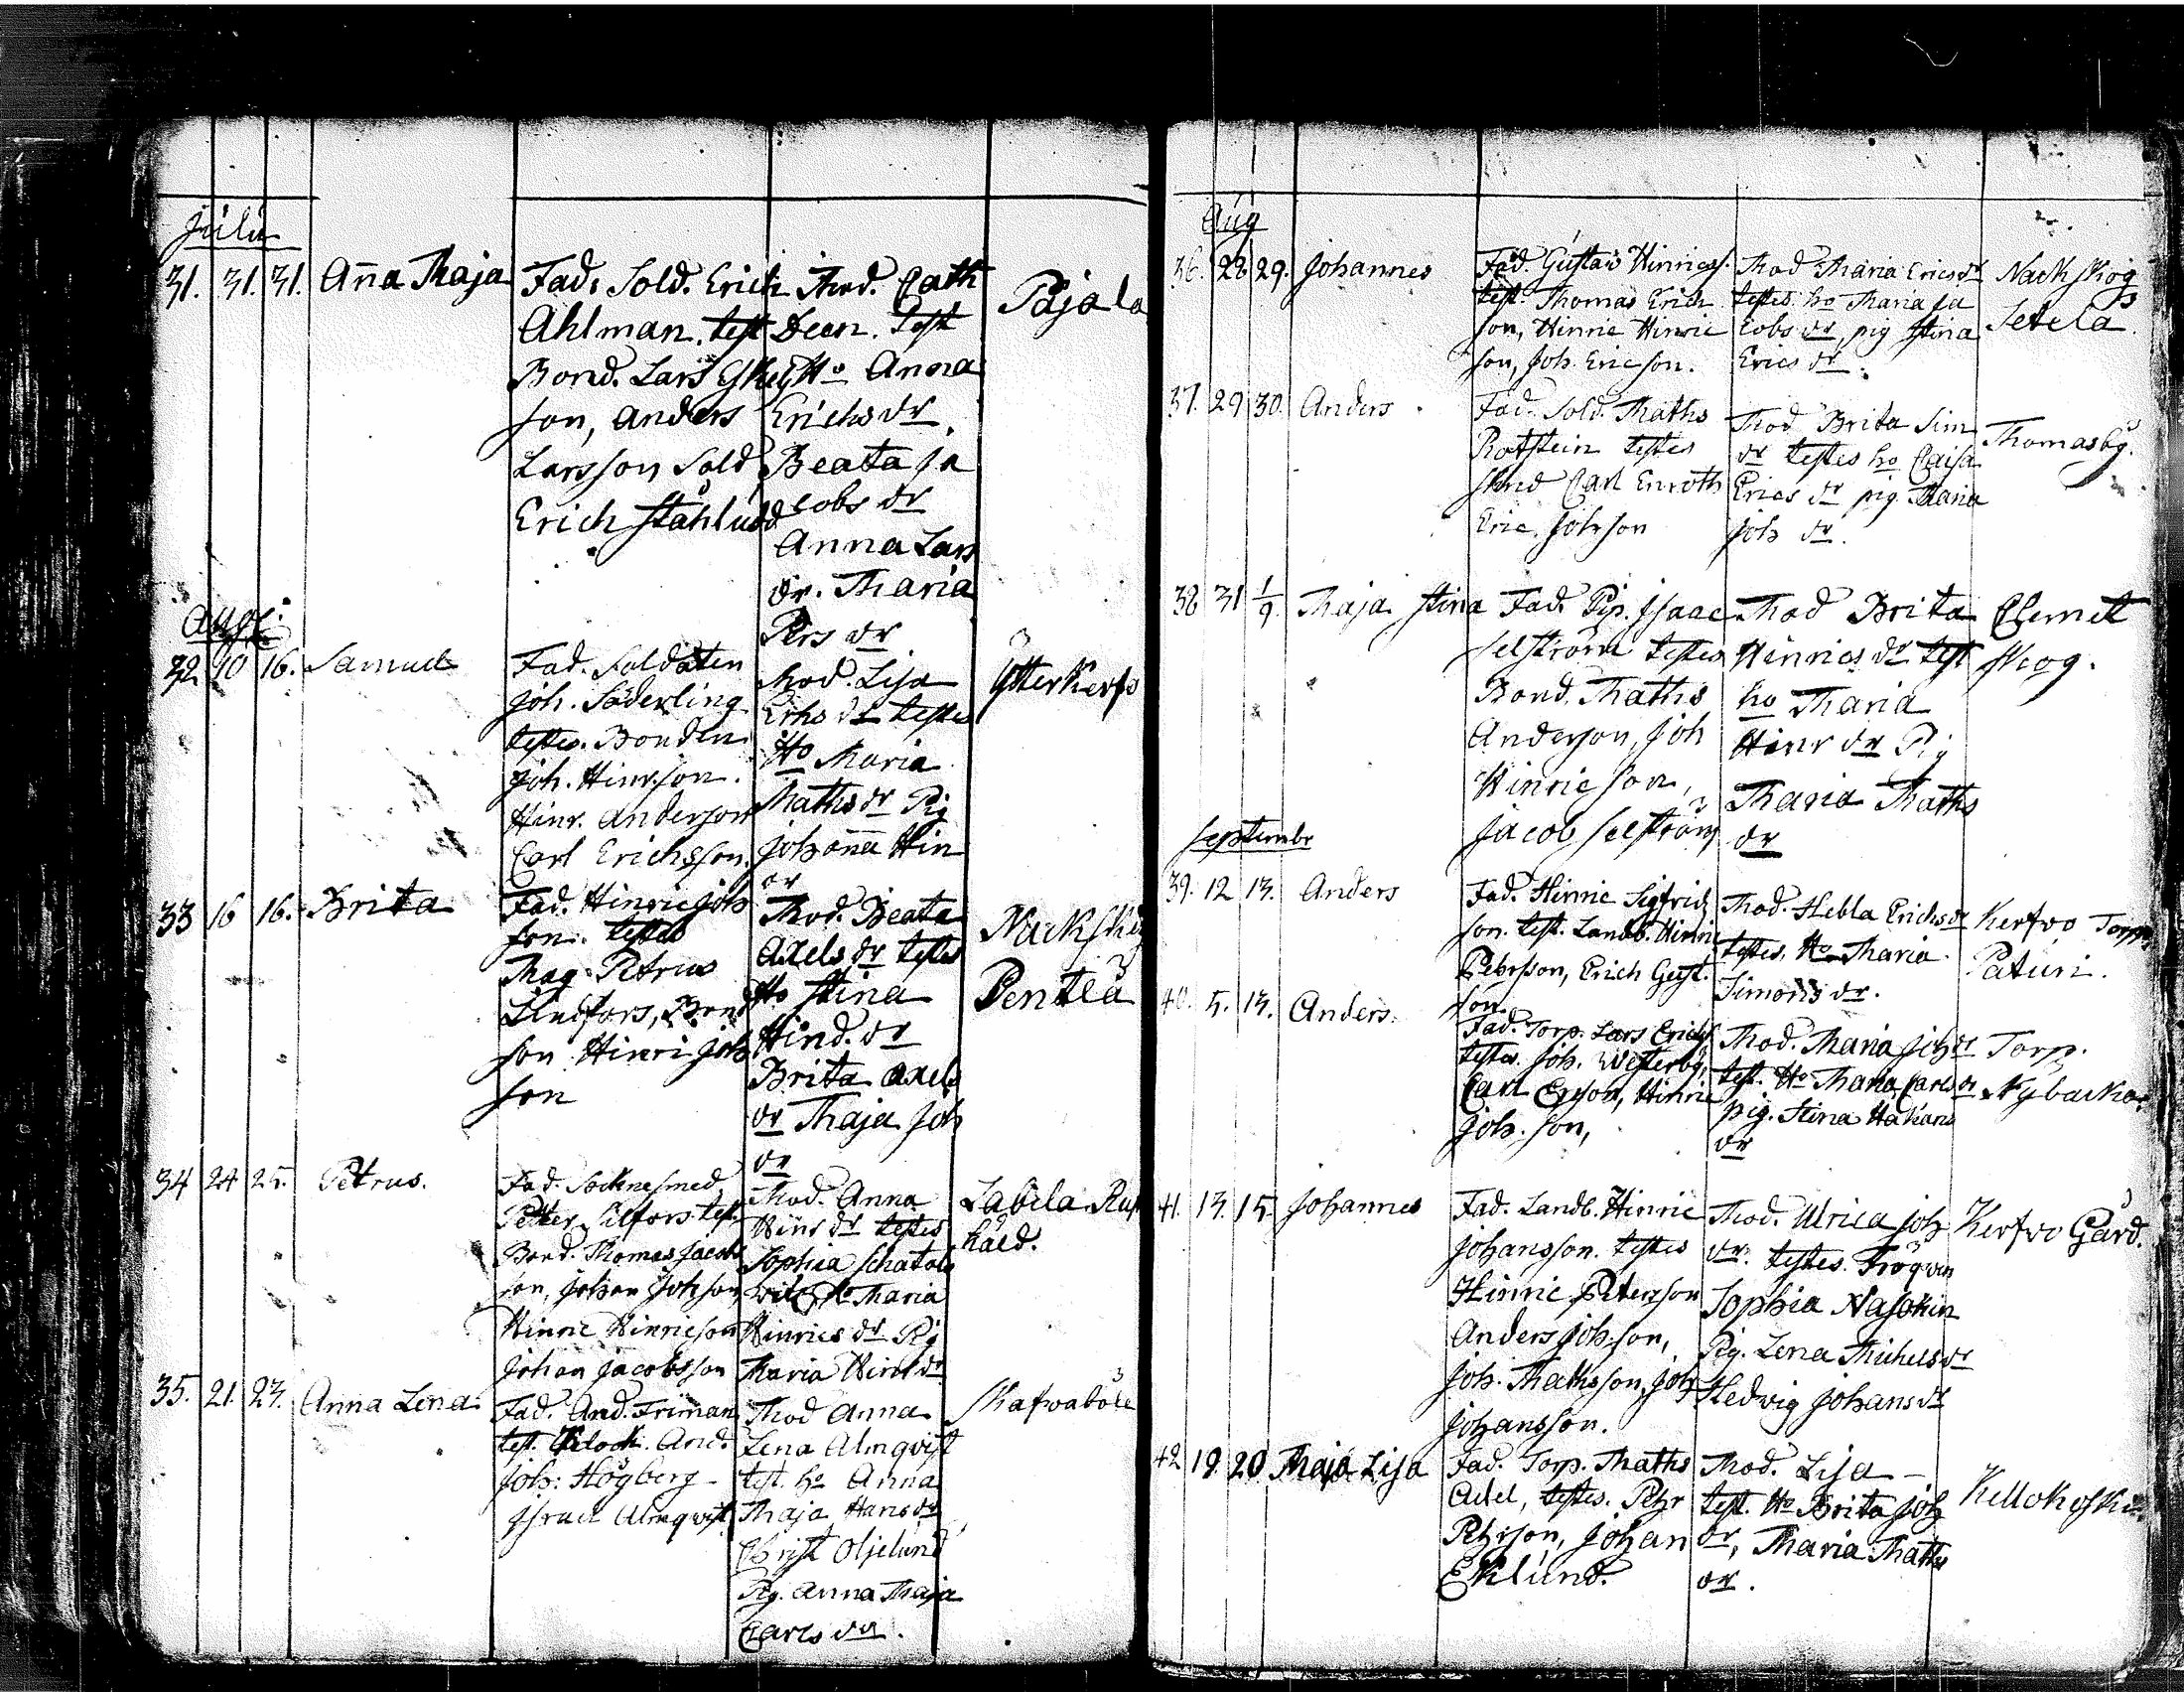 Julii
31. 31. 31. Anna Maja
Fad. Sold. Erich
Ahlman. test
Bond. Lars
son, Anders
Larsson, Sold
Erich Ståhludd
Mod. Cath
Deen. Test
Ho Anna
Erichs dr
Beata Ja
cobs dr
Anna Lars
dr. Maria
Pers dr
Pajala
Aug.
32 10 16. Samuel
Fad. Soldaten
Joh. Söderling
testes. Bonden
Joh. Hinr.son.
Hinr. Anderson
Carl Erichsson.
Mod. Lisa
Erhs dr testes
Ho Maria
Maths dr Pig
Johanna Hin
dr
Ytterkerfo
33 16 16. Brita
Fad. Hinric Joh
son. testes
Mag. Petrus
Lindfors,
son Hinri Joh
son
Mod. Beata
Axels dr testes
Ho Stina
Hind. dr
Brita Axels
dr Maja Joh
dr
Nackskog
Pentlå
34 24 25. Petrus.
Fad. Socknesmed
Petter Silfors test.
Bond. Thomas Jacobs
son, Johan Johson
Hinric Hinricson
Johan Jacobsson
Mod. Anna
Hinr dr testes
Sophia
Ho Maria
Hinrics dr Pig
Maria Hinr dr
Labela
håld.
35. 21. 23. Anna Lena
Fad. And. Friman
test. Klock. And.
Joh: Högberg
Israel Almqvist
Mod Anna
Lena Almqvist
test. ho Anna
Maja Hans dr
Christ Oljelund
Pig. Anna Maja
Carls dr.
Skafvaböle
Aug
36. 28 29. Johannes
Fad. Gustav Hinricss.
test. Thomas Erich
son, Hinric Hinric
son, Joh. Ericson.
Mod Maria Erics dr
testes. ho Maria Ja
cobs dr, pig Stina
Erics dr.
Nackskog
Setela.
37. 29 30. Anders.
Fad. Sold. Maths
Rotstein testes
Carl Enroth
Eric. Johson
Mod Brita Sim
dr testes ho Caisa
Erics dr pig. Maria
Joh dr.
Thomasby.
38 31 1/9. Maja Stina
Fad. Pip. Isaac
Selström testes
Bond. Maths
Anderson, Joh
Hinricson,
Jacob Selström
Mod Brita
Hinrics dr test
ho Maria
Hinr dr Pig
Maria Maths
dr
Clemet
skog.
Septembr
39. 12 13. Anders
Fad. Hinric Sigfrid
son. test. Landb. Hinric
Pehrsson, Erich Gust.
son
Mod. Hebla Erichs dr
testes, Ho Maria
Simons dr.
Kerfvo Torp.
Paturi.
40. 5. 13. Anders.
Fad. Torp. Lars Erichs
testes. Joh. Westerby,
Carl Erson, Hinric
Joh. son,
Mod. Maria Joh dr
test. Ho Maria Carls dr
pig. Stina Håkans
dr
Torp.
Nybacka.
41. 13. 15. Johannes
Fad. Landb. Hinric
Johansson. testes
Hinric Peterson
Anders Johson,
Joh. Mathsson, Joh
Johansson.
Mod. Ulrica Joh
dr. testes. Frögven
Sophia Nasokin
Pig. Lena Michels dr
Hedvig Johans dr
Kerfvo Gård.
42 19. 20. Maja Lisa
Fad. Torp. Maths
Adel, testes. Pehr
Pehrson, Johan
Eklund.
Mod. Lisa -
test. Ho Brita Joh
dr, Maria Maths
dr.
Kellokoski.